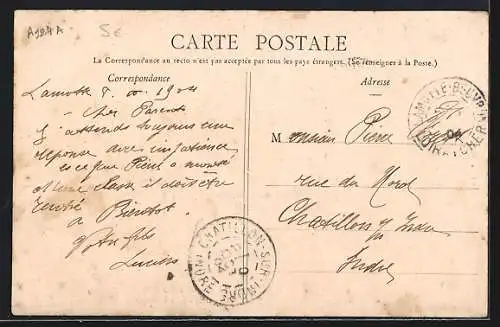 A1974A
5€
CARTE POSTALE
La Correspondance au recto n'est pas acceptée par tous les pays étrangers. (Se renseignez à la Poste.)
Correspondance
Adresse
Lamotte 8. 1904
Cher Parents
J'attends toujours une
réponse avec impatience
es ce que Pierre a
classe il doit être
rentré à
Bientot.
Votre fils
Lucien
M onsieur Pierre
rue du Nord
Chatillon s/ Indre
Indre
LAMOTTE-BEUVRON
04
LOIR-ET-CHER
CHATILLON-SUR-INDRE
INDRE